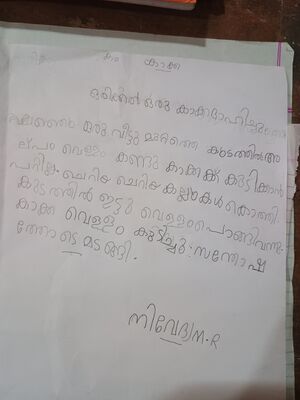 കാക്ക
ഒരിക്കൽ ഒരു കാക്ക ദാഹിച്ചു
ഒരു വീട്ടു മുറ്റത്തെ കുടത്തിൽ അ
ല്പം വെള്ളം കണ്ടു കാക്കക്ക് കുടിക്കാൻ
പറ്റില്ല. ചെറിയ ചെറിയ കല്ലുകൾ കൊത്തി
കുടത്തിൽ ഇട്ടു വെള്ളം പൊങ്ങി വന്നു
കാക്ക വെള്ളം കുടിച്ചു: സന്തോഷ
ത്തോടെ മടങ്ങി.
നിവേദ്യ M.R